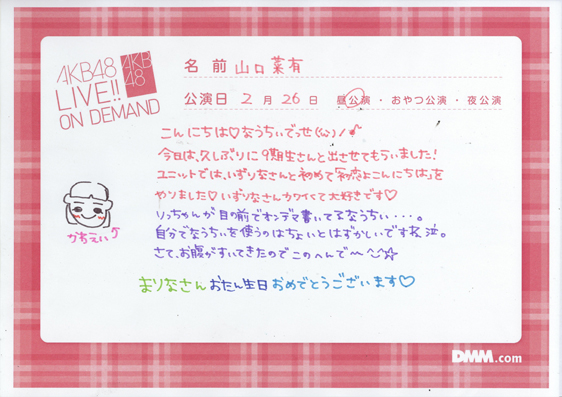 AKB48
LIVE!!
ON DEMAND
AKB
48
名前 山口菜有
公演日 2月26日 昼公演・おやつ公演・夜公演
こんにちは♡なうちぃでっせ
今日は、久しぶりに9期生さんと出させてもらいました!
ユニットでは、いずりなさんと初めて「初恋よこんにちは」を
やりました♡いずりなさんカワイくて大好きです♡
りっちゃんが目の前でオンデマ書いてるなうちぃ・・・。
自分でなうちぃを使うのはちょいとはずかしいです 泣。
さて、お腹がすいてきたのでこのへんで〜
まりなさん おたん生日 おめでとうございます♡
DMM.com